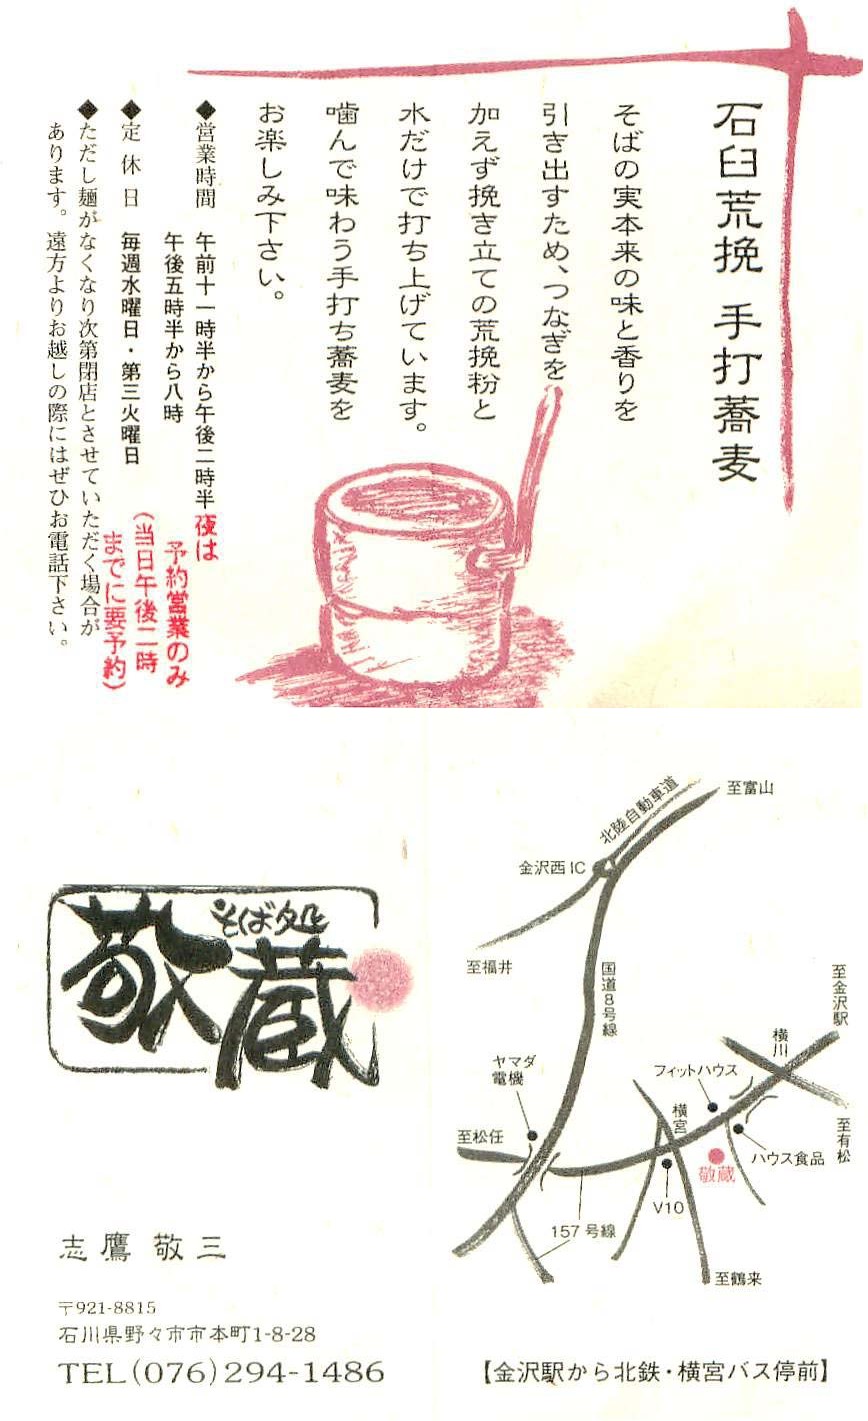 石臼荒挽 手打蕎麦
そばの実本来の味と香りを
引き出すため、つなぎを
加えず挽き立ての荒挽粉と
水だけで打ち上げています。
噛んで味わう手打ち蕎麦を
お楽しみ下さい。
◆営業時間 午前十一時半から午後二時半
午後五時半から八時
夜は
予約営業のみ
(当日午後二時
までに要予約)
◆定休日 毎週水曜日・第三火曜日
◆ただし麺がなくなり次第閉店とさせていただく場合が
あります。遠方よりお越しの際にはぜひお電話下さい。
そば処
敬蔵
志鷹 敬三
〒921-8815
石川県野々市市本町1-8-28
TEL(076)294-1486
至富山
北陸自動車道
金沢西IC
至福井
国道8号線
至金沢駅
横川
ヤマダ
電機
フィットハウス
横宮
至松任
至有松
ハウス食品
敬蔵
V10
157号線
至鶴来
【金沢駅から北鉄・横宮バス停前】